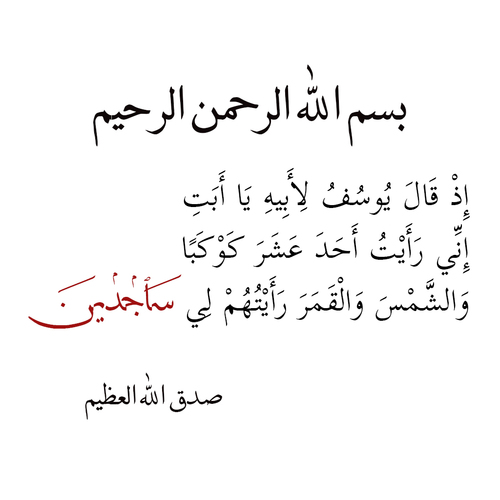 بسم الله الرحمن الرحيم
إِذْ قَالَ يُوسُفُ لِأَبِيهِ يَا أَبَتِ
إِنِّي رَأَيْتُ أَحَدَ عَشَرَ كَوْكَبًا
وَالشَّمْسَ وَالْقَمَرَ رَأَيْتُهُمْ لِي سَاجِدِينَ
صدق الله العظيم